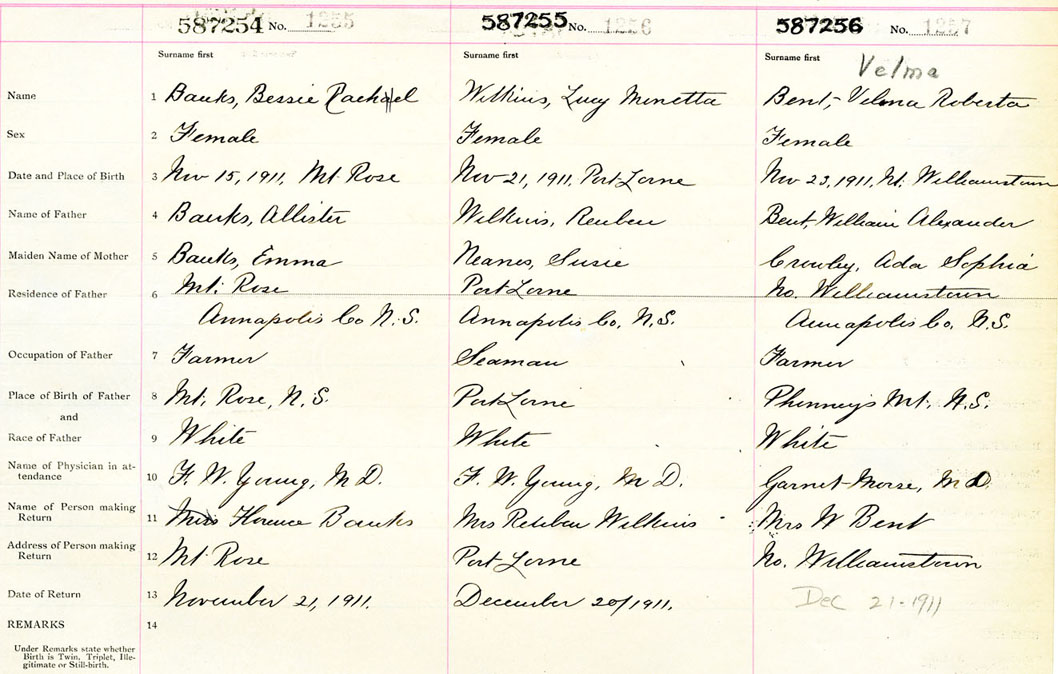 587254 No. 1255 587255 No. 1256 587256 No. 1257
Surname first Surname first Surname first Velma
Name 1 Banks, Bessie Rachael Wilkins, Lucy Minetta Bent, Velma Roberta
Sex 2 Female Female Female
Date and Place of Birth 3 Nov 15, 1911, Mt. Rose Nov 21, 1911, Port Lorne Nov 23, 1911, Mt. Williamstown
Name of Father 4 Banks, Allister Wilkins, Reuben Bent, William Alexander
Maiden Name of Mother 5 Banks, Emma Neanes, Susie Crowley, Ada Sophia
Residence of Father 6 Mt. Rose Port Lorne No. Williamstown
Annapolis Co N.S. Annapolis Co, N.S. Annapolis Co, N.S.
Occupation of Father 7 Farmer Seaman Farmer
Place of Birth of Father 8 Mt. Rose, N.S. Port Lorne Phinney's Mt., N.S.
and
Race of Father 9 White White White
Name of Physician in at-
tendance 10 F. W. Young, M D. F. W. Young, M D. Garnet Morse, M D.
Name of Person making
Return 11 Miss Florence Banks Mrs Reuben Wilkins Mrs W Bent
Address of Person making
Return 12 Mt Rose Port Lorne No. Williamstown
Date of Return 13 November 21, 1911. December 20/1911. Dec 21-1911
REMARKS 14
Under Remarks state whether
Birth is Twin, Triplet, Ille-
gitimate or Still-birth.